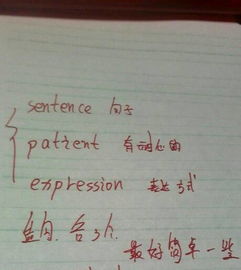 sentence 句子
patient 有耐心的
expression 表达方式
各3个
最好简单一些